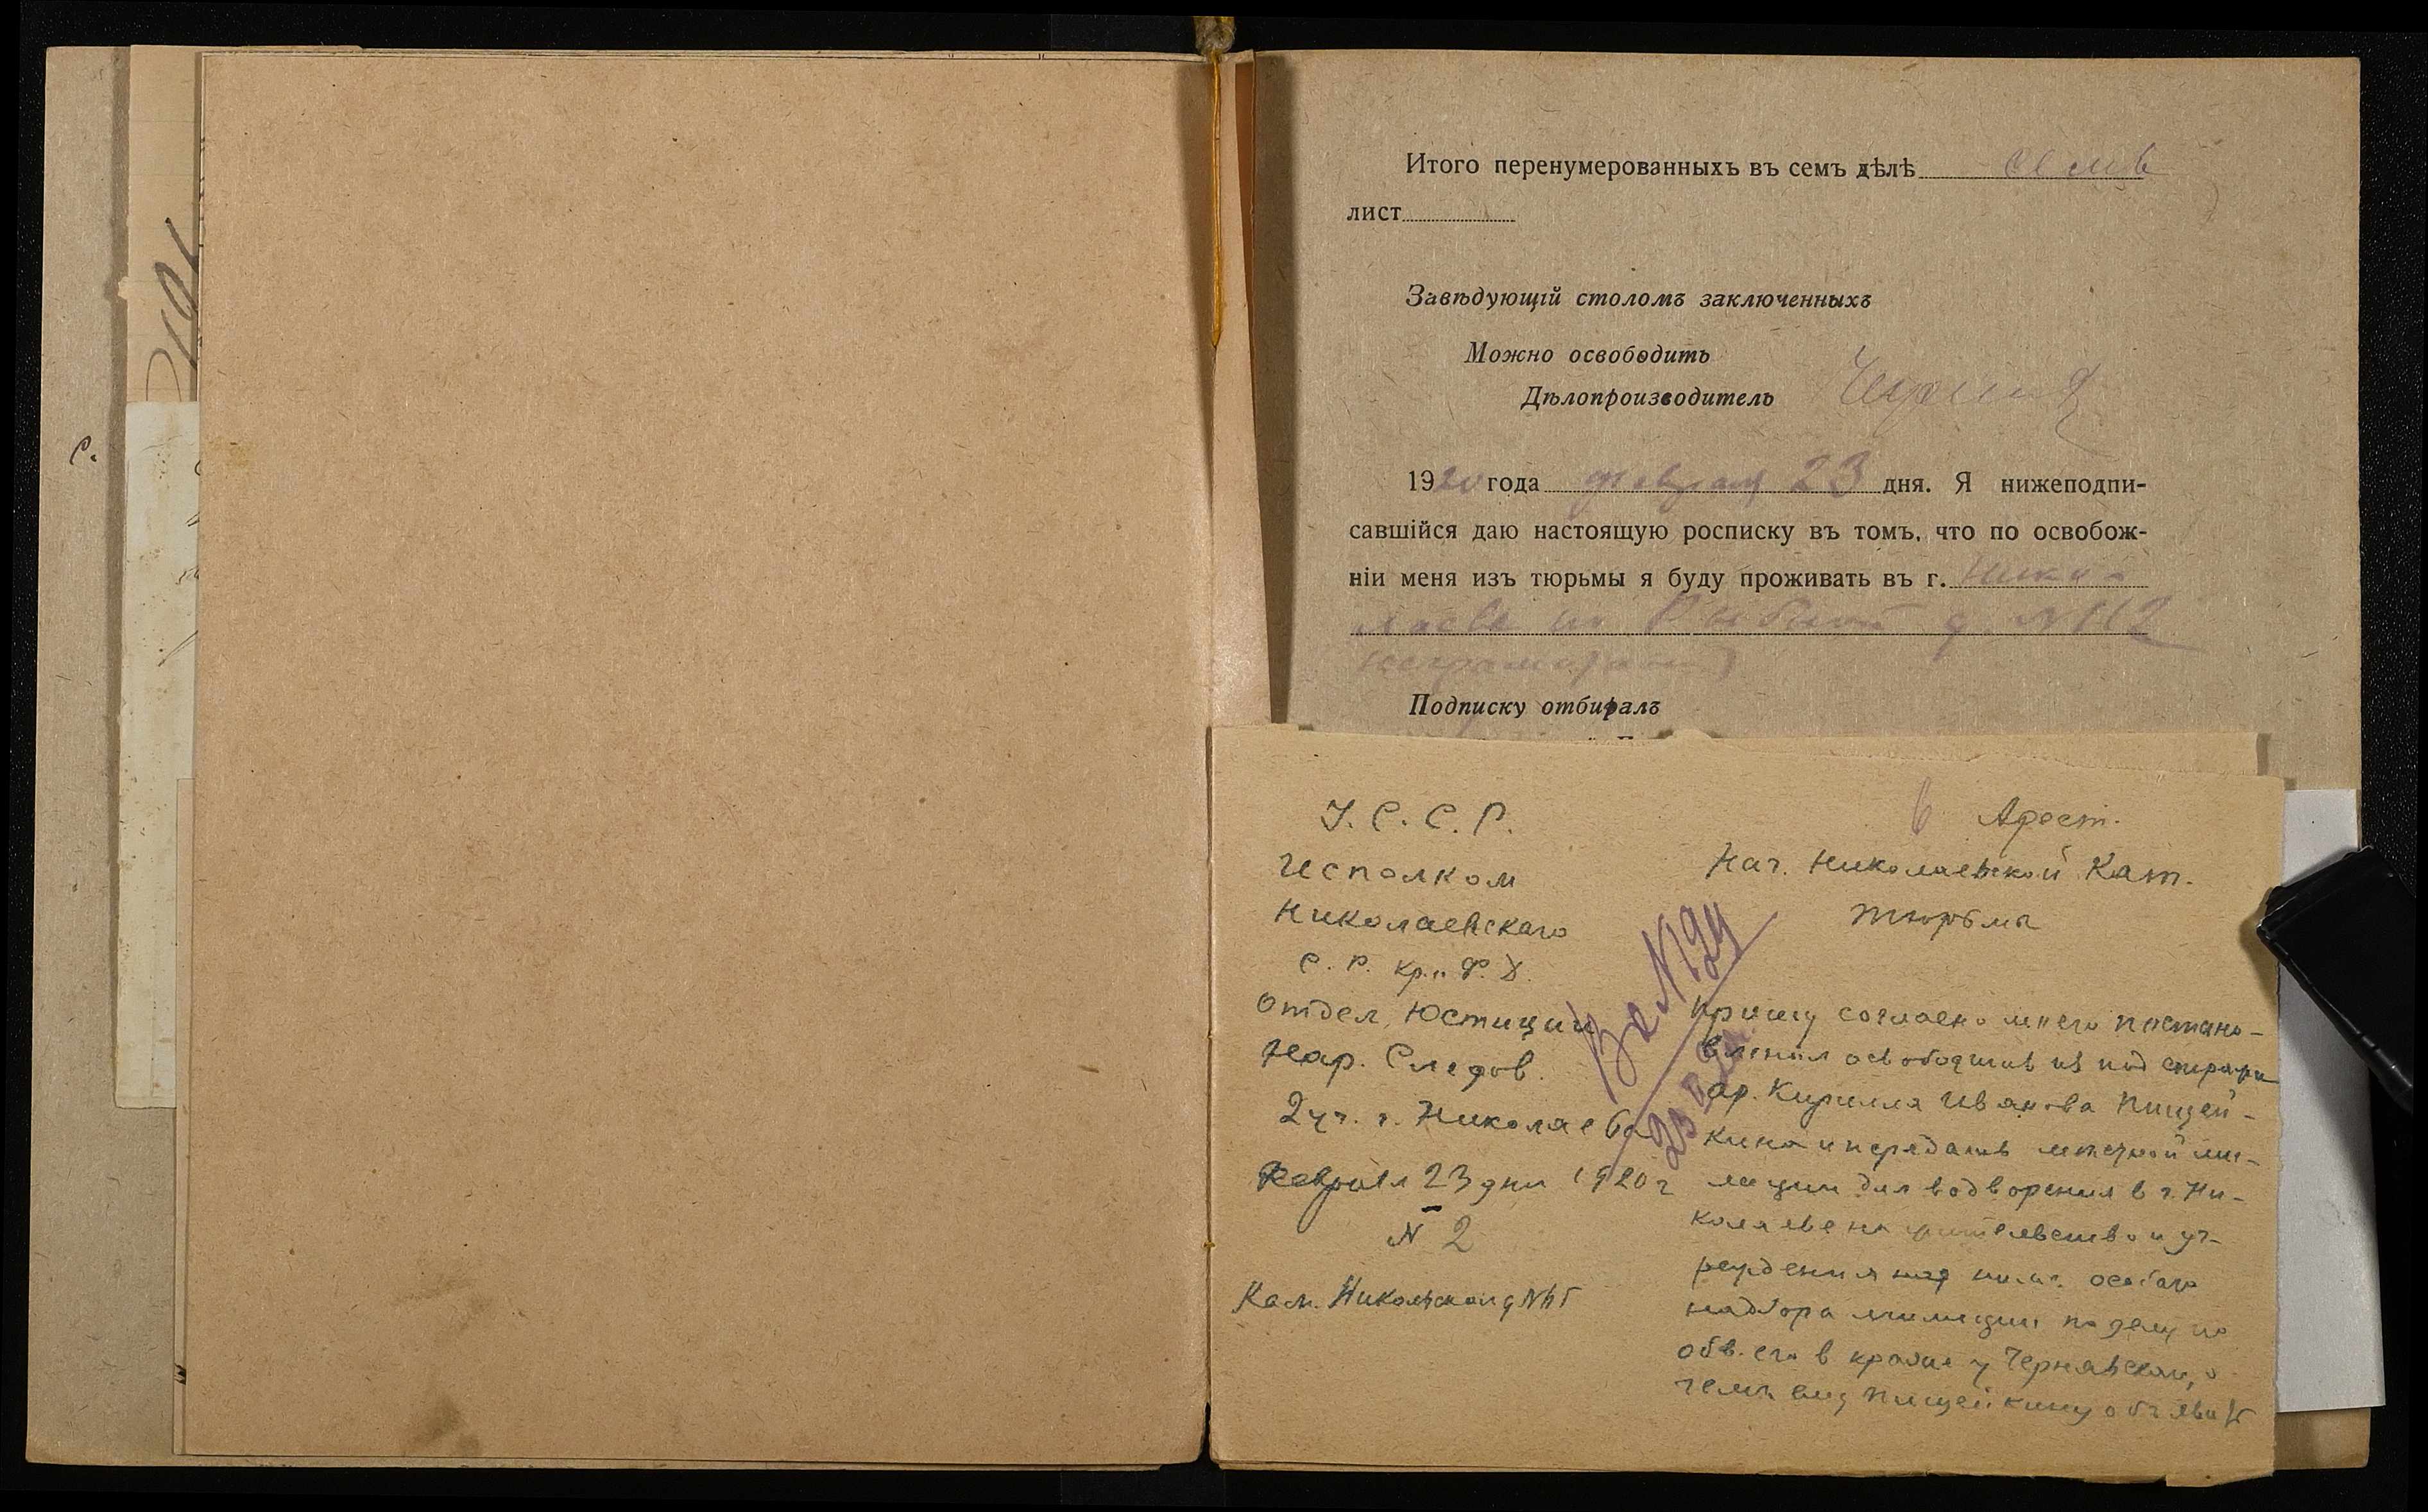 Итого перенумерованныхъ въ семъ дѣлѣ
лист
Завѣдующій столомъ заключенныхъ
Можно освободить
Дѣлопроизводитель
1920 года февраля 23 дня. Я нижеподпи-
савшійся даю настоящую росписку въ томъ, что по освобож-
ніи меня изъ тюрьмы я буду проживать въ г. Нико-
лаеве по Рыбной д №112
неграмотный
Подписку отбиралъ
У. С. С. Р.
Исполком
Николаевскаго
С. Р. Кр. и Ф. Д.
Отдел Юстиции
Нар. Следов.
2 уч. г. Николаева
Февраля 23 дня 1920 г
№ 2
Кам. Никольская д №
Вх №124
23
6 Арест.
Нач. Николаевской Кат.
тюрьмы
Прошу согласно моего постано-
вления освободить из под стражи
ар. Кирилла Иванова Пищей-
кина и передать местной ми-
лиции для водворения в г. Ни-
колаеве на жительство и уч-
реждения над ним особаго
надзора милиции по делу по
обв. его в краже у Чернявской, о
чем ему Пищейкину объявить